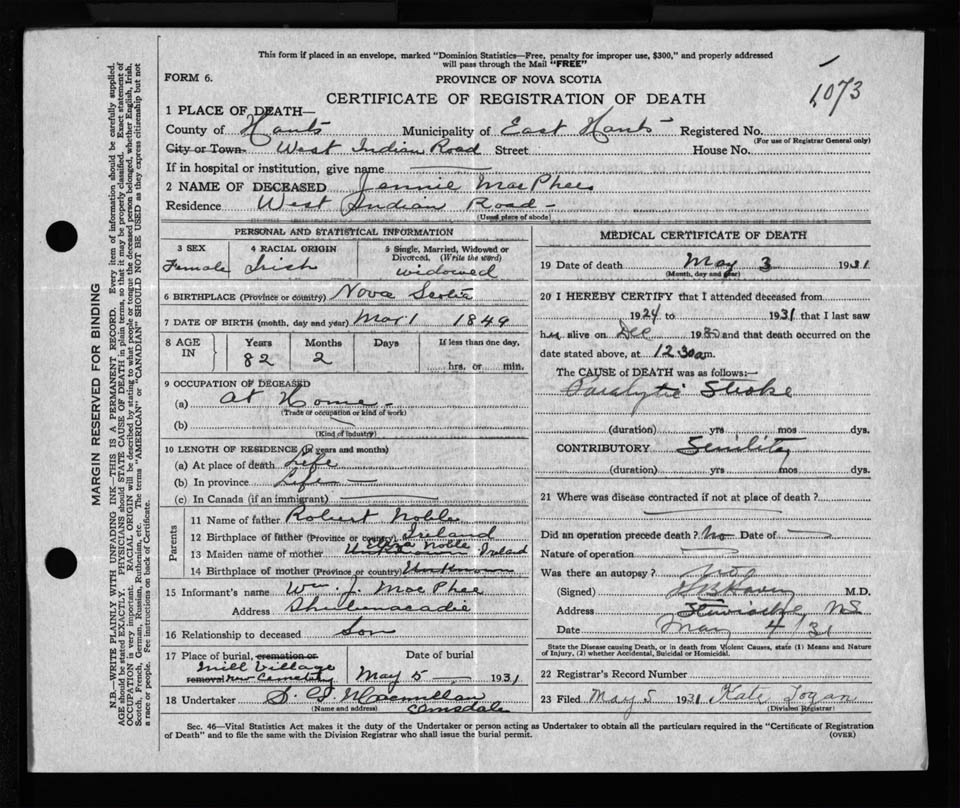 This form if placed in an envelope, marked "Dominion Statistics—Free, penalty for improper use, $300," and properly addressed
will pass through the Mail "FREE"
FORM 6.
PROVINCE OF NOVA SCOTIA
1073
CERTIFICATE OF REGISTRATION OF DEATH
1 PLACE OF DEATH—
County of Hants Municipality of East Hants Registered No.
(For use of Registrar General only)
City or Town West Indian Road Street House No.
If in hospital or institution, give name
2 NAME OF DECEASED Jennie MacPhee
Residence West Indian Road
(Usual place of abode)
PERSONAL AND STATISTICAL INFORMATION
3 SEX 4 RACIAL ORIGIN 5 Single, Married, Widowed or
Divorced. (Write the word)
Female Irish widowed
6 BIRTHPLACE (Province or country) Nova Scotia
7 DATE OF BIRTH (month, day and year) Mar 1 1849
8 AGE IN Years Months Days If less than one day,
82 2 hrs. or min.
9 OCCUPATION OF DECEASED
(a) At Home
(Trade or occupation or kind of work)
(b)
(Kind of industry)
10 LENGTH OF RESIDENCE (In years and months)
(a) At place of death Life
(b) In province Life
(c) In Canada (if an immigrant)
Parents
11 Name of father Robert Noble
12 Birthplace of father (Province or country) Ireland
13 Maiden name of mother Eliza Noble Ireland
14 Birthplace of mother (Province or country)
15 Informant's name Wm. J. MacPhee
Address Shubenacadie
16 Relationship to deceased Son
17 Place of burial, cremation or Date of burial
removal Mill Village
new Cemetery May 5 1931
18 Undertaker MacMillan
(Name and address) Elmsdale
MEDICAL CERTIFICATE OF DEATH
19 Date of death May 3 1931
(Month, day and year)
20 I HEREBY CERTIFY that I attended deceased from
1924 to 1931 that I last saw
her alive on Dec 1930 and that death occurred on
date stated above, at 12.30 am.
The CAUSE of DEATH was as follows:—
Paralytic Stroke
(duration) yrs mos dys.
CONTRIBUTORY Senility
(duration) yrs mos dys.
21 Where was disease contracted if not at place of death?
Did an operation precede death? No Date of
Nature of operation
Was there an autopsy? No
(Signed) M.D.
Address Stewiacke NS
Date May 4/31
State the Disease causing Death, or in death from Violent Causes, state (1) Means and Nature
of Injury, (2) whether Accidental, Suicidal or Homicidal.
22 Registrar's Record Number
23 Filed May 5 1931 Kate Logan
(Division Registrar)
Sec. 46—Vital Statistics Act makes it the duty of the Undertaker or person acting as Undertaker to obtain all the particulars required in the "Certificate of Registration
of Death" and to file the same with the Division Registrar who shall issue the burial permit.
(OVER)
MARGIN RESERVED FOR BINDING
N.B.—WRITE PLAINLY WITH UNFADING INK—THIS IS A PERMANENT RECORD. Every item of information should be carefully supplied.
AGE should be stated EXACTLY. PHYSICIANS should STATE CAUSE OF DEATH in plain terms, so that it may be properly classified. Exact statement of
OCCUPATION is very important. RACIAL ORIGIN will be described by stating to what people or tongue the deceased person belonged, whether English, Irish,
Scotch, French, German, Russian, Ruthenian, etc. The terms "AMERICAN" or "CANADIAN" SHOULD NOT BE USED as they express citizenship but not
a race or people. Fee instructions on back of Certificate.